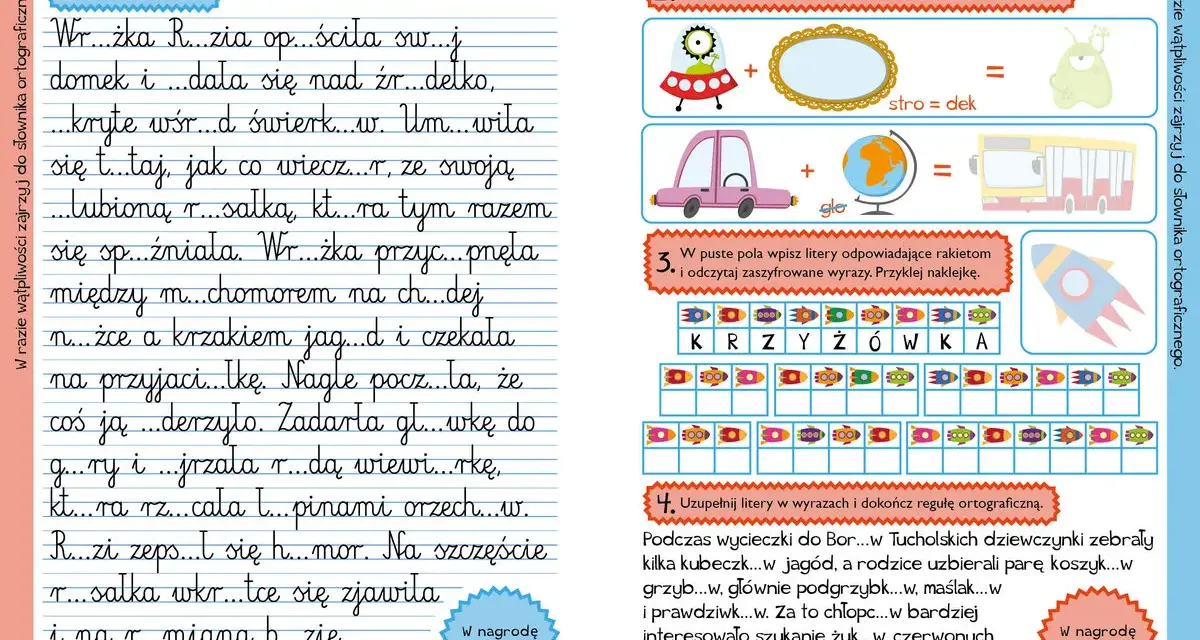 W razie wątpliwości zajrzyj do słownika ortograficzn
Wr...żka R...zia op...ściła sw...j
domek i ...dała się nad źr...dełko,
...kryte wśr...d świerk...w. Um...wiła
się t...taj, jak co wiecz...r, ze swoją
...lubioną r...sałką, kt...ra tym razem
się sp...źniała. Wr...żka przyc...pnęła
między m...chomorem na ch...dej
n...żce a krzakiem jag...d i czekała
na przyjaci...łkę. Nagle pocz...ła, że
coś ją ...derzyło. Zadarła gł...wkę do
g...ry i ...jrzała r...dą wiewi...rkę,
kt...ra rz...cała ł...pinami orzech...w.
R...zi zeps...ł się h...mor. Na szczęście
r...sałka wkr...tce się zjawiła
W nagrodę
+ =
stro = dek
+ =
glo
3. W puste pola wpisz litery odpowiadające rakietom
i odczytaj zaszyfrowane wyrazy. Przyklej naklejkę.
K R Z Y Ż Ó W K A
4. Uzupełnij litery w wyrazach i dokończ regułę ortograficzną.
Podczas wycieczki do Bor...w Tucholskich dziewczynki zebrały
kilka kubeczk...w jagód, a rodzice uzbierali parę koszyk...w
grzyb...w, głównie podgrzybk...w, maślak...w
i prawdziwk...w. Za to chłopc...w bardziej
interesowało szukanie żuk...w czerwonych
W nagrodę
zie wątpliwości zajrzyj do słownika ortograficznego.